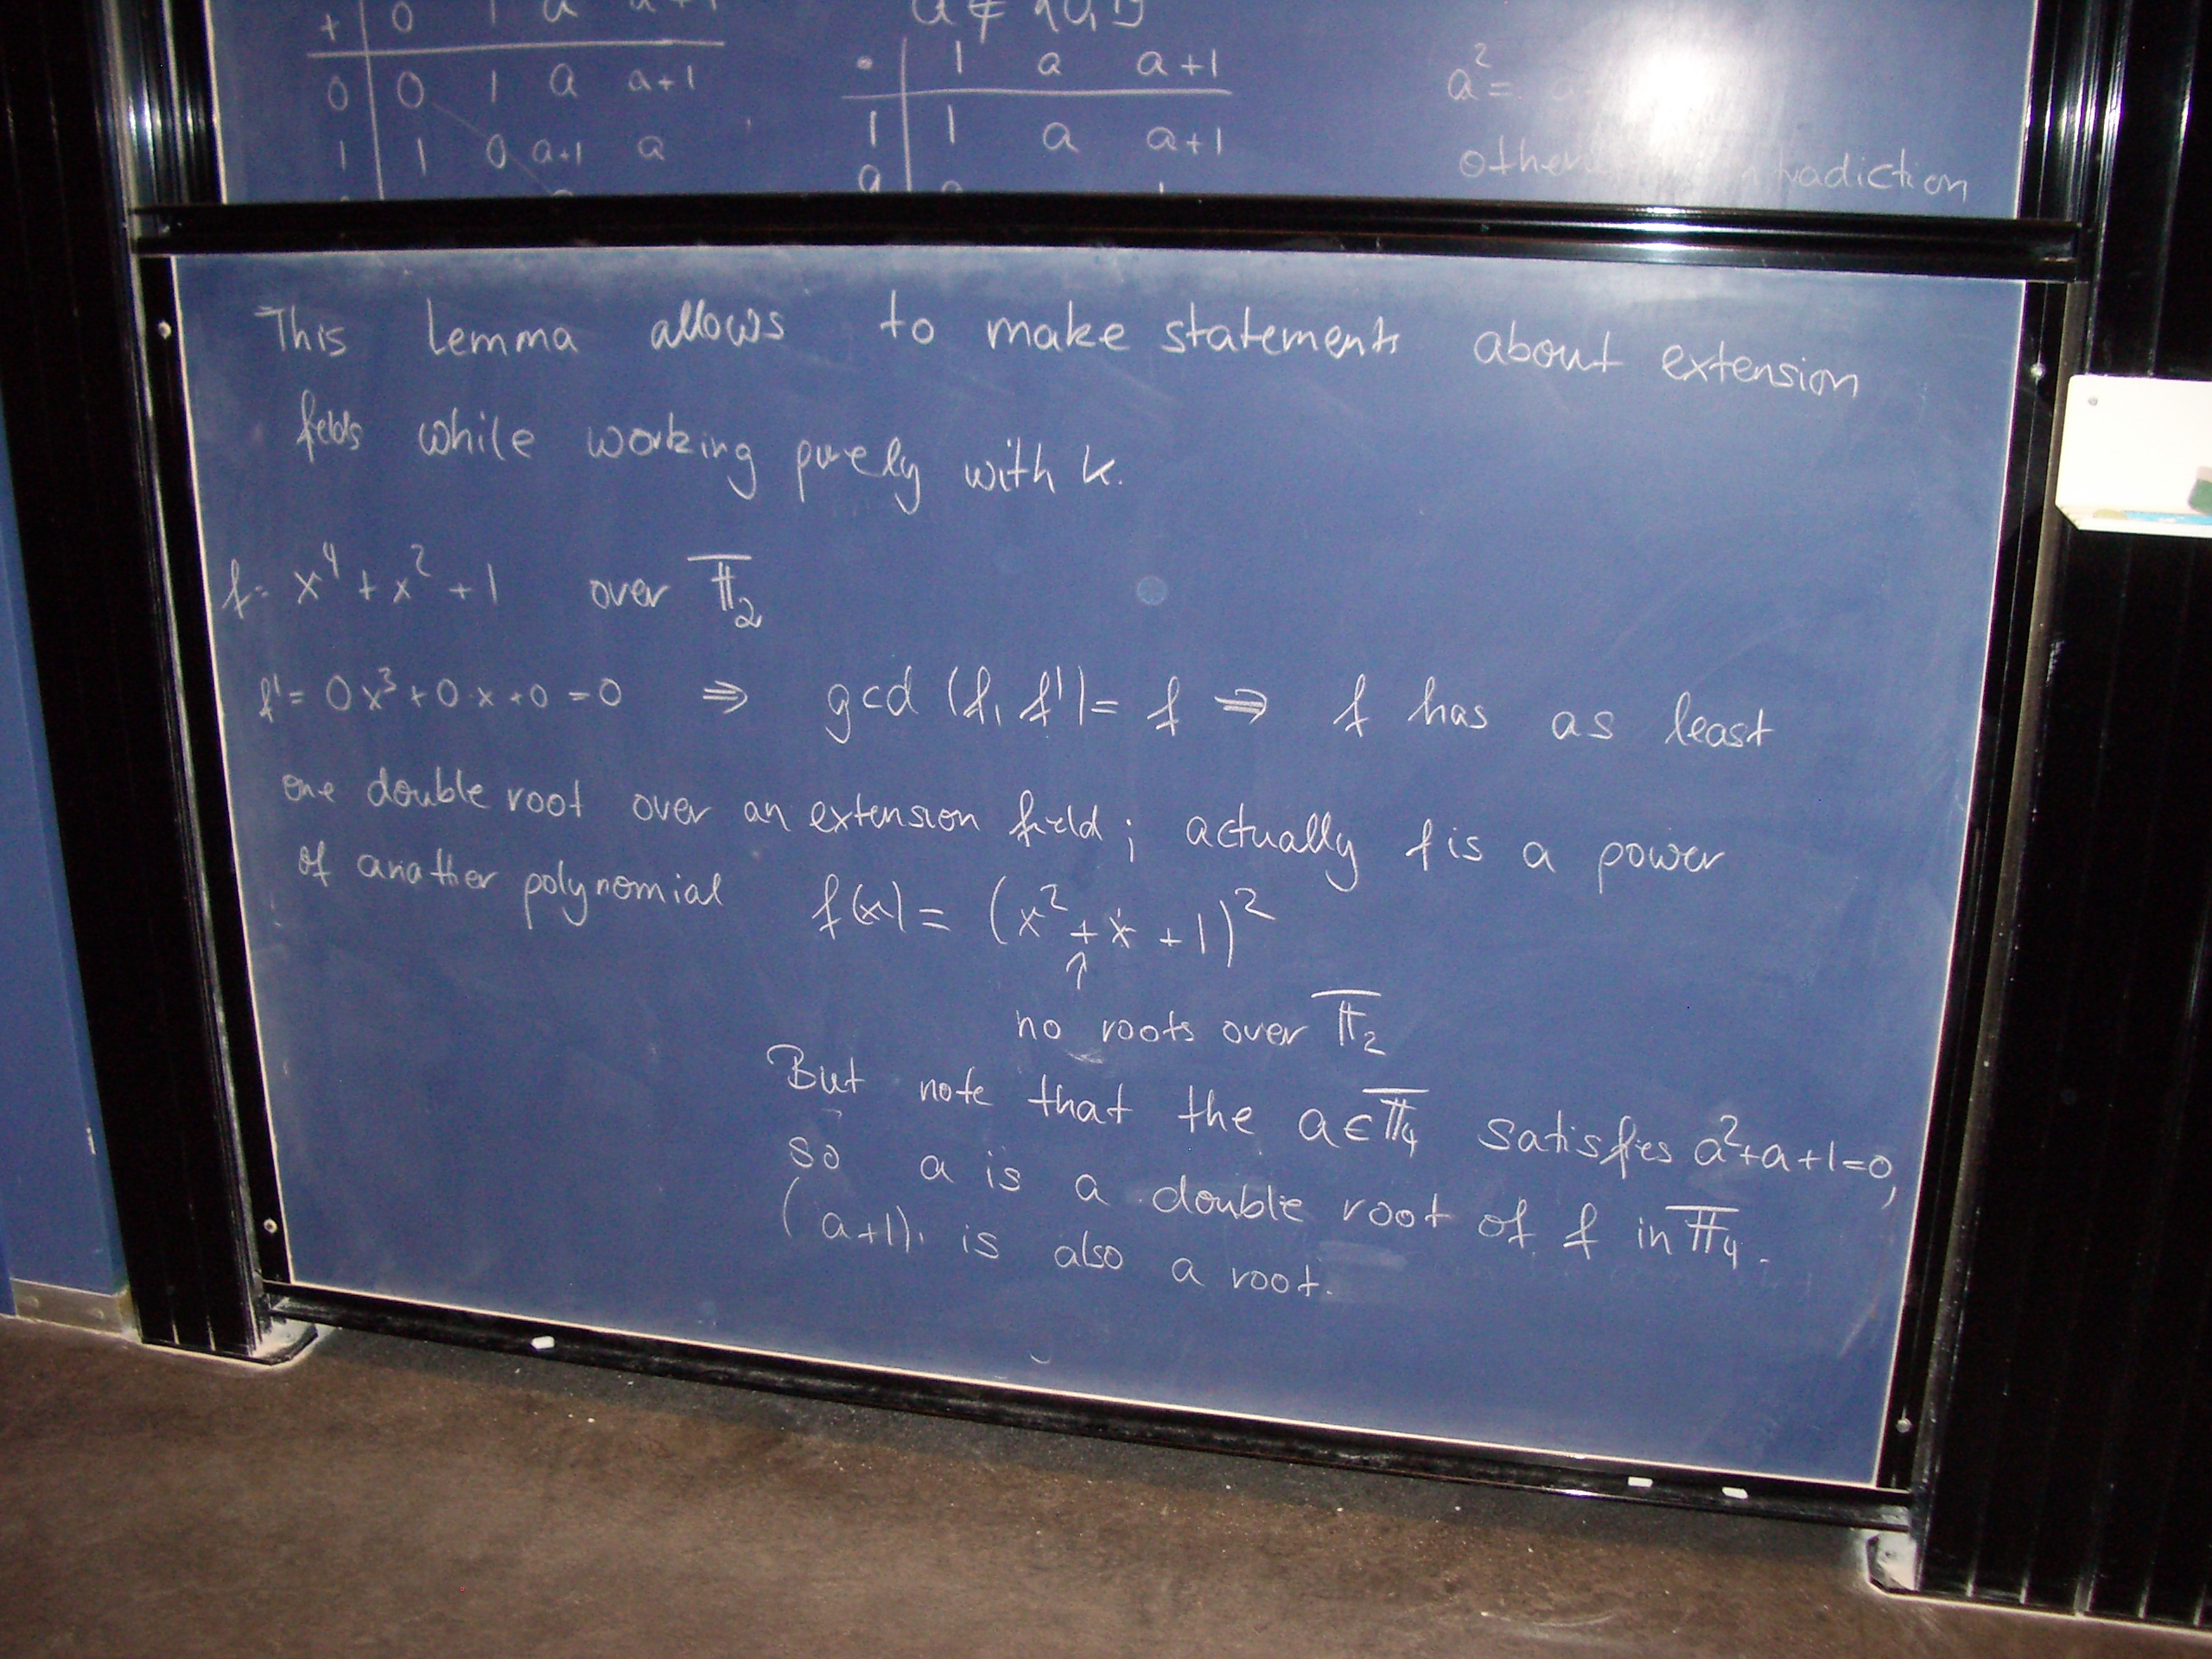 + 0 1 a a+1
0 0 1 a a+1
1 1 0 a+1 a
a ∉ {0,1}
• 1 a a+1
1 1 a a+1
a
a² =
contradiction
This Lemma allows to make statements about extension
fields while working purely with k.
f = x⁴ + x² + 1 over 𝔽₂
f' = 0x³ + 0·x + 0 = 0 ⇒ gcd (f, f') = f ⇒ f has as least
one double root over an extension field ; actually f is a power
of another polynomial f(x) = (x² + x + 1)²
↑
no roots over 𝔽₂
But note that the a ∈ 𝔽₄ satisfies a²+a+1=0,
so a is a double root of f in 𝔽₄.
(a+1) is also a root.